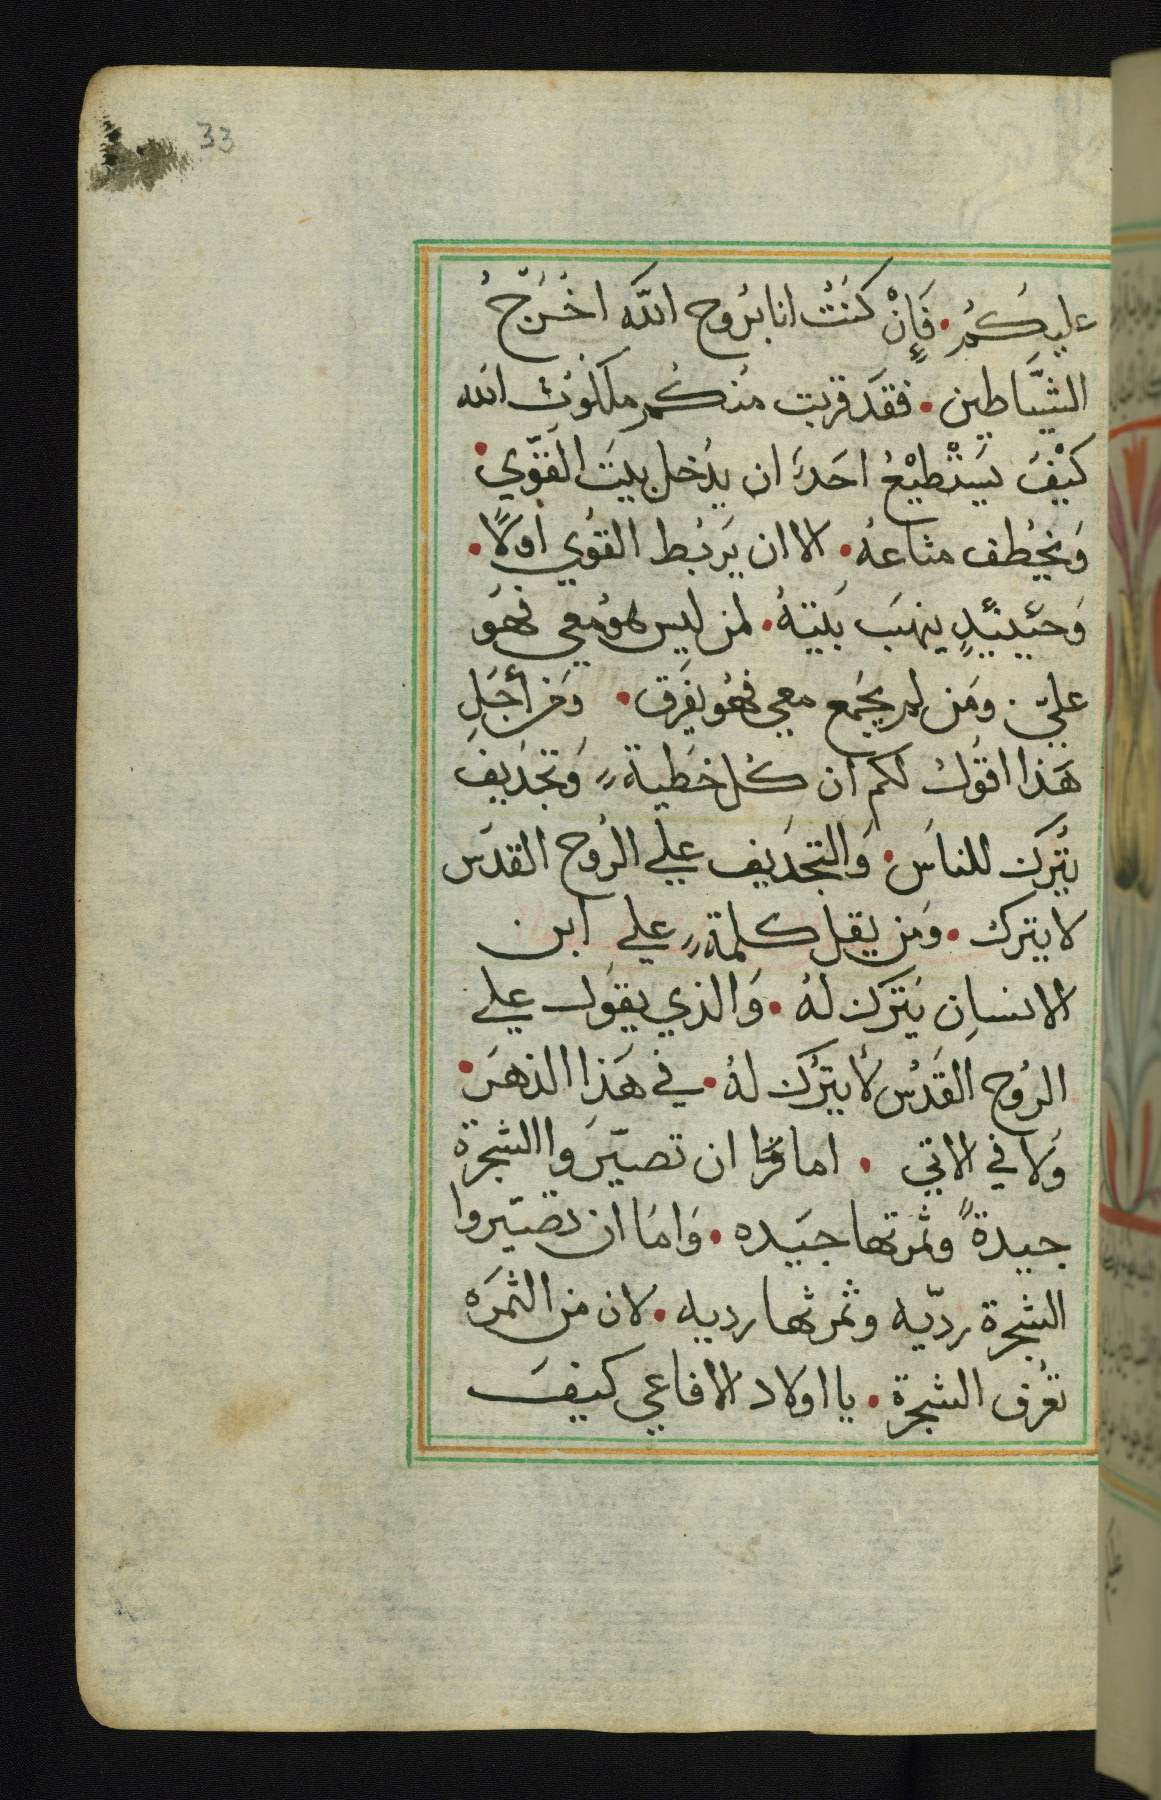 33
عليكُمُ. فَإِنْ كنتُ انا بُروح اللّه اخُرّجُ
الشيَّاطين. فقَد قربت منكُمر ملكوُت الله
كيْفَ يَستْطيْعُ احَدٌ ان يدُخل بيتَ القوّي.
وَيخُطف متاعهُ. الا ان يَربُط القوُي أولاً.
وَحئينيذٍ ينهبَ بَيتهُ. لمن ليس هوُ معي فهوُ
عليّ. ومَن لم يجَمع معي فهوُ يفَرق. وَمن أجَلِ
هَذا اقوَل لكم ان كُل خطَيةٍ وَتجدَيفَ
يتُرك للناَس. وَالتجدَيف علي الرُوح القدسَ
لا يترك. وَمن يقل كلمةٍ علي ابن
الانسانِ يَترك لهُ. وَالذي يقوَل علي
الرُوح القَدُس لأ يتُرك لهُ. في هَذا الدهرَ.
وَلا في الاتي. اما ان تصيّرَوا الشجرة
جيدةً وثمرتها جيَده. وَامَا ان تصيّروا
الشجرة رديّه وثمرتها رديه. لان من الثمرَه
تعُرف الشجرة. يا اولاد الافاعي كيفَ